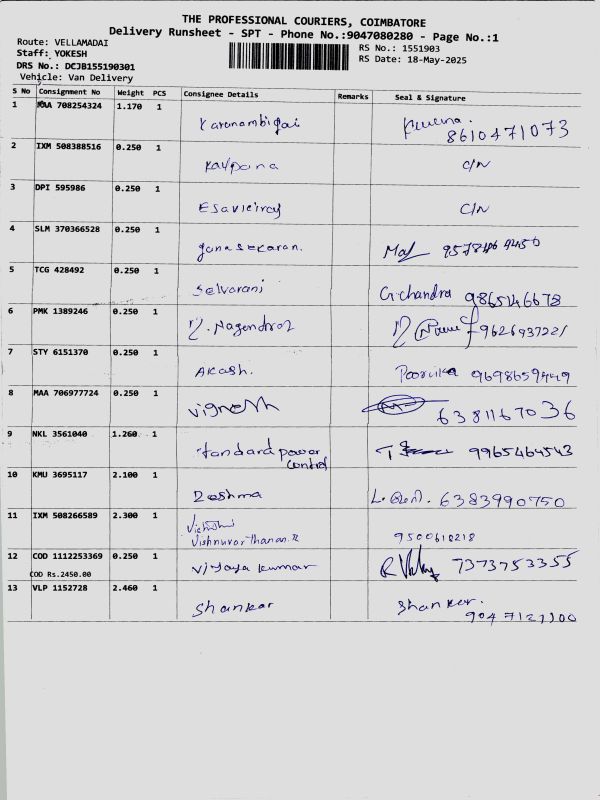 THE PROFESSIONAL COURIERS, COIMBATORE
Delivery Runsheet - SPT - Phone No.:9047080280 - Page No.:1
Route: VELLAMADAI
Staff: YOKESH
DRS No.: DCJB155190301
Vehicle: Van Delivery
RS No.: 1551903
RS Date: 18-May-2025
S No Consignment No Weight PCS Consignee Details Remarks Seal & Signature
1 MAA 708254324 1.170 1 Karunambigai 8610471073
2 IXM 508388516 0.250 1 Kalpana C/N
3 DPI 595986 0.250 1 C/N
4 SLM 370366528 0.250 1 gunasekaran.
5 TCG 428492 0.250 1 Selvarani G.chandra 9865146678
6 PMK 1389246 0.250 1 9626937221
7 STY 6151370 0.250 1 Akash. Poorvika 9698659449
8 MAA 706977724 0.250 1 Vignesh 6381167036
9 NKL 3561040 1.260 1 Standard power
control 9965464543
10 KMU 3695117 2.100 1 Reshma 6383990750
11 IXM 508266589 2.300 1
Vishnuvarthanan.R 9500610218
12 COD 1112253369 0.250 1 Vijaya kumar 7373753355
COD Rs.2450.00
13 VLP 1152728 2.460 1 Shankar Shankar.
9047121100